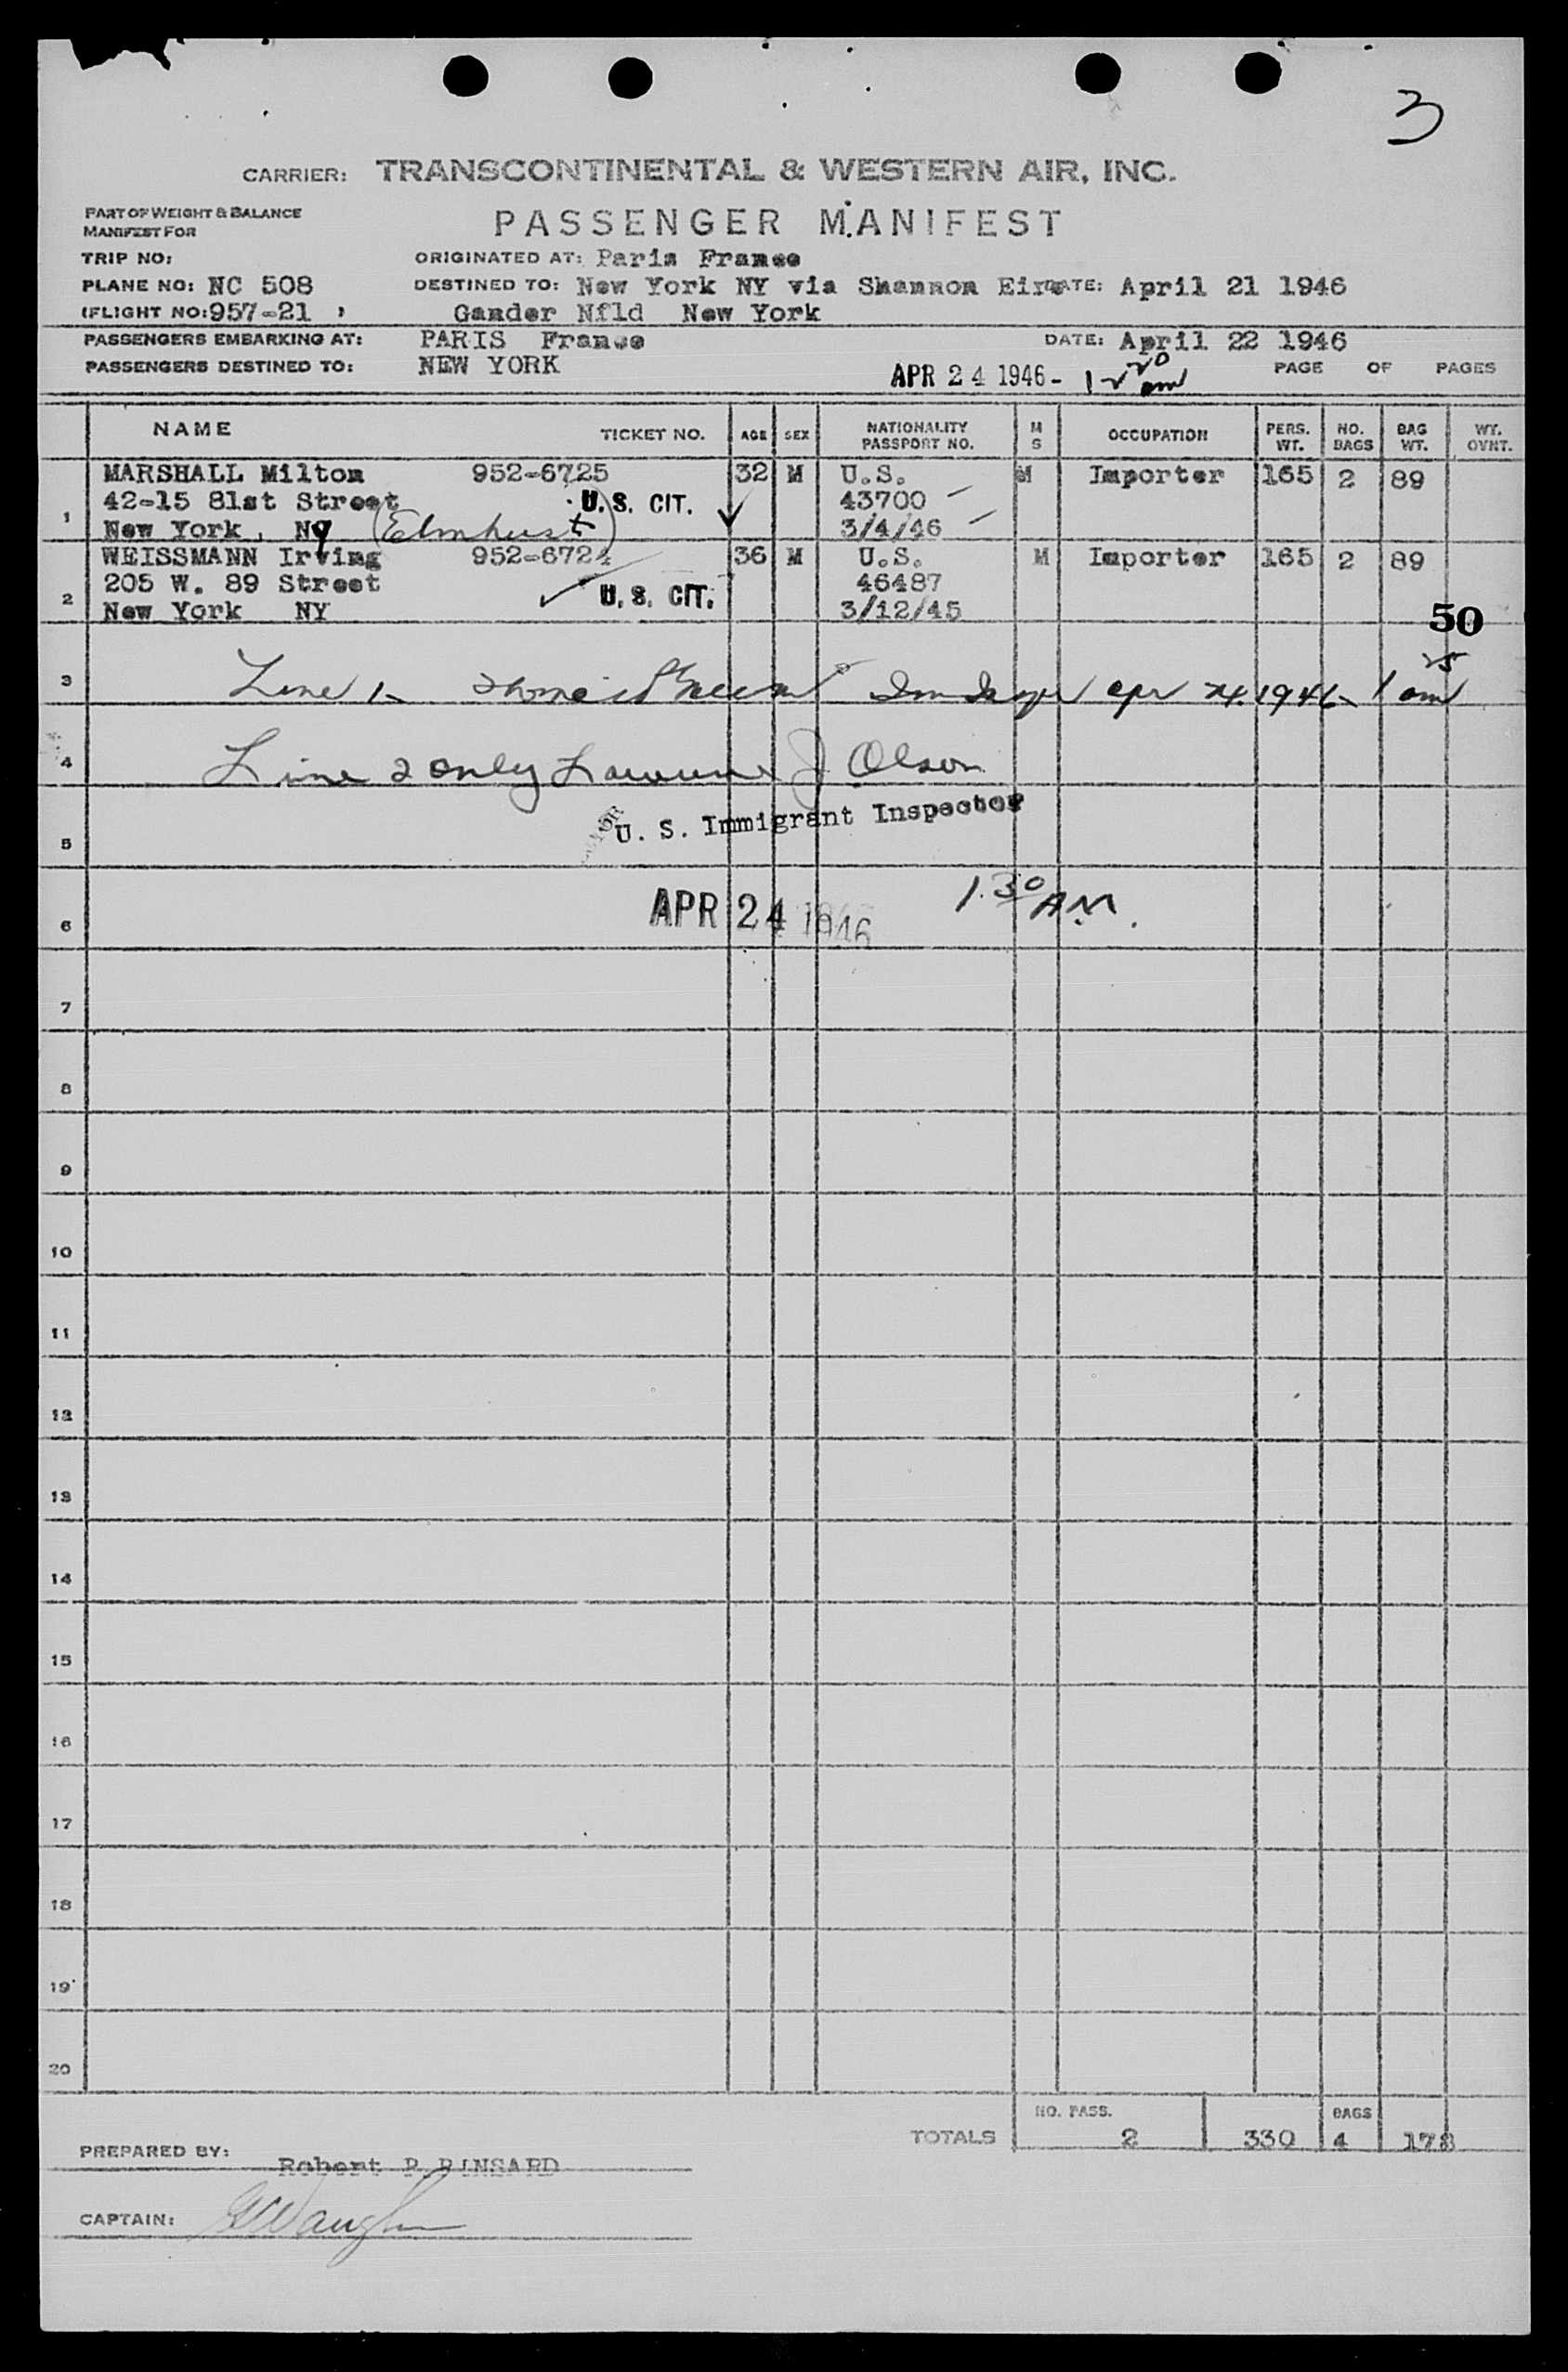 3
CARRIER: TRANSCONTINENTAL & WESTERN AIR, INC.
PART OF WEIGHT & BALANCE
MANIFEST FOR
PASSENGER MANIFEST
TRIP NO: ORIGINATED AT: Paris France
PLANE NO: NC 508 DESTINED TO: New York NY via Shannon Eire DATE: April 21 1946
(FLIGHT NO: 957-21 ) Gander Nfld New York
PASSENGERS EMBARKING AT: PARIS France DATE: April 22 1946
PASSENGERS DESTINED TO: NEW YORK APR 24 1946 - 1 20 am PAGE OF PAGES
NAME TICKET NO. AGE SEX NATIONALITY PASSPORT NO. M S OCCUPATION PERS. WT. NO. BAGS BAG WT. WT. OVNT.
MARSHALL Milton 952-6725 32 M U.S. M Importer 165 2 89
42-15 81st Street U.S. CIT. 43700
1 New York, NY (Elmhurst) 3/4/46
WEISSMANN Irving 952-6724 36 M U.S. M Importer 165 2 89
205 W. 89 Street U.S. CIT. 46487
2 New York NY 3/12/45
50
3 Line 1 - Imm Insp Apr 24. 1946 - 1 25 am
4 Line 2 only Lawrence J Olson
5 U. S. Immigrant Inspector
6 APR 24 1946 1.30 AM.
7
8
9
10
11
12
13
14
15
16
17
18
19
20
TOTALS NO. PASS. 2 330 BAGS 4 178
PREPARED BY: Robert P.
CAPTAIN: